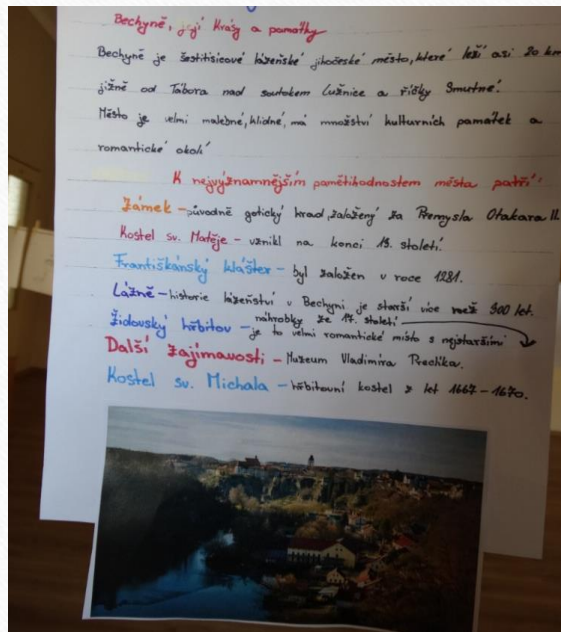 Bechyně, její krásy a památky
Bechyně je šestitisícové lázeňské jihočeské město, které leží asi 20 km
jižně od Tábora nad soutokem Lužnice a říčky Smutné.
Město je velmi malebné, klidné, má množství kulturních památek a
romantické okolí
K nejvýznamnějším pamětihodnostem města patří:
Zámek – původně gotický hrad, založený za Přemysla Otakara II.
Kostel sv. Matěje – vznikl na konci 13. století.
Františkánský klášter – byl založen v roce 1281.
Lázně – historie lázeňství v Bechyni je starší více než 300 let.
Židovský hřbitov – je to velmi romantické místo s nejstaršími
náhrobky ze 17. století
Další zajímavosti – Muzeum Vladimíra Preclíka.
Kostel sv. Michala – hřbitovní kostel z let 1667 – 1670.